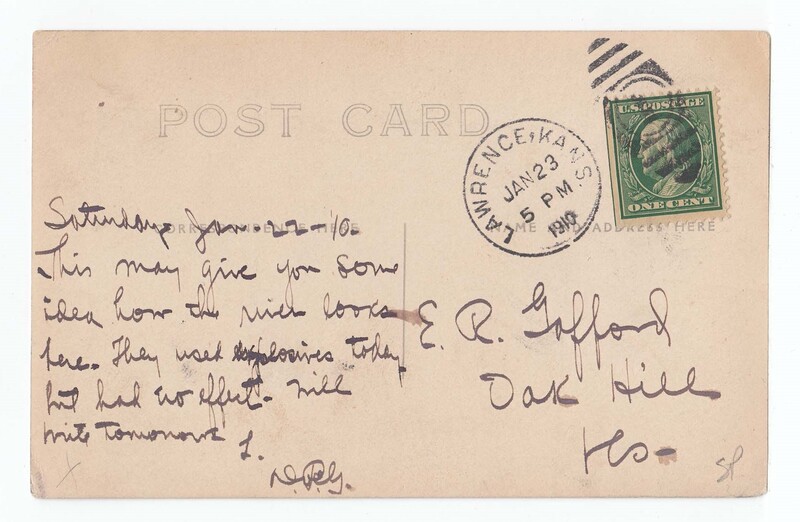 POST CARD
LAWRENCE, KANS.
JAN 23
5 PM
1910
U.S. POSTAGE
ONE CENT
CORRESPONDENCE HERE
NAME AND ADDRESS HERE
Saturday Jan-22-10-
This may give you some
idea how the river looks
here. They used explosives today
but had no effect- will
write tomorrow
D.R.G.
E. R. Gafford
Oak Hill
Ks-
SP
X